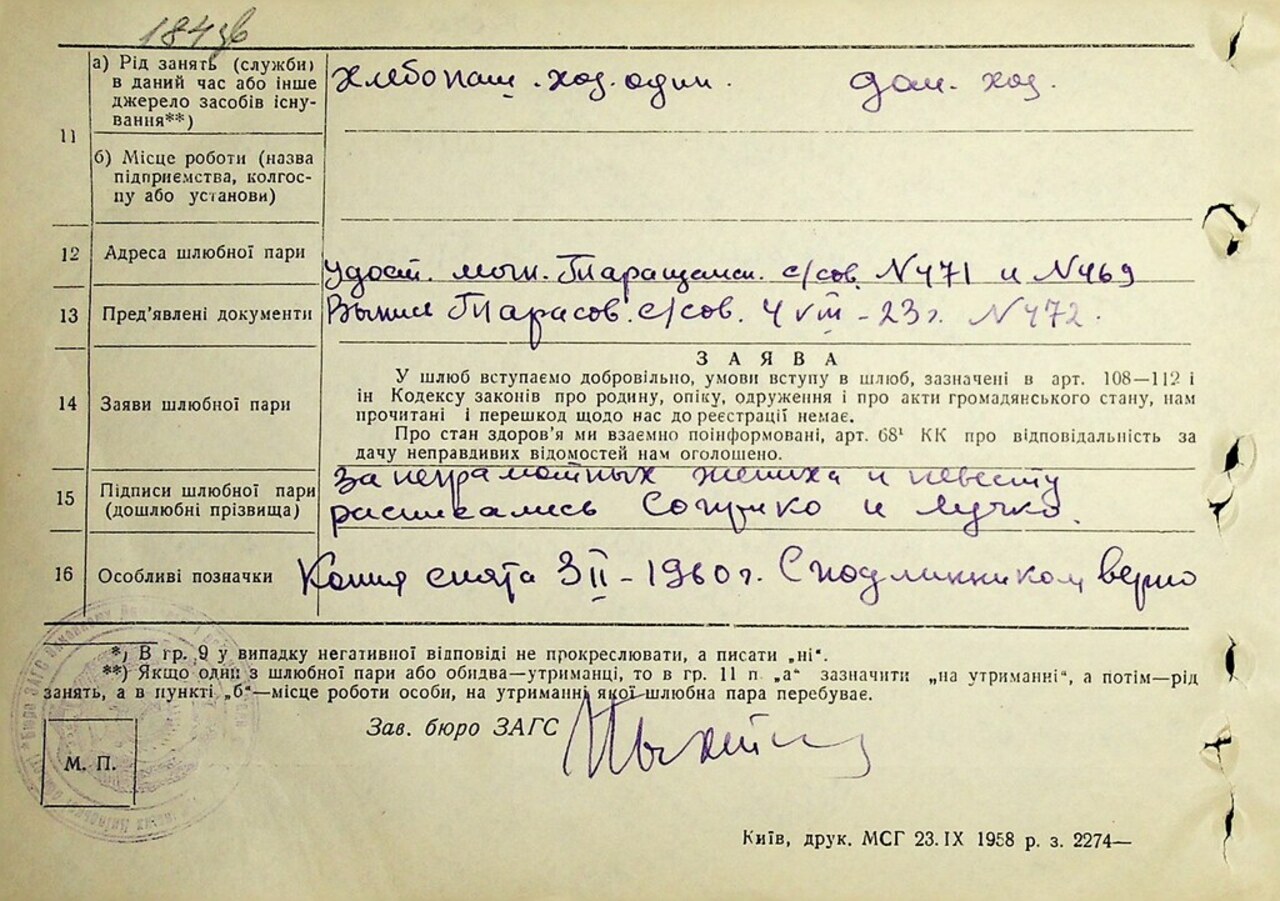 184
а) Рід занять (служби) в даний час або інше джерело засобів існування**)
хлебопаш. хоз. один. дом. хоз.
11
б) Місце роботи (назва підприємства, колгоспу або установи)
12 Адреса шлюбної пари
Удост. Таращанск. с/сов. N471 и N469
13 Пред'явлені документи Выпис Тарасов. с/сов. 4 VIII - 23 г. N472.
З А Я В А
У шлюб вступаємо добровільно, умови вступу в шлюб, зазначені в арт. 108—112 і
14 Заяви шлюбної пари
ін Кодексу законів про родину, опіку, одруження і про акти громадянського стану, нам
прочитані і перешкод щодо нас до реєстрації немає.
Про стан здоров'я ми взаємно поінформовані, арт. 68¹ КК про відповідальність за
дачу неправдивих відомостей нам оголошено.
15 Підписи шлюбної пари (дошлюбні прізвища)
За неграмотных жениха и невесту
расписались и Лучко.
16 Особливі позначки Копия снята 3 II - 1960 г. С подлинником верно
*) В гр. 9 у випадку негативної відповіді не прокреслювати, а писати „ні".
**) Якщо один з шлюбної пари або обидва—утриманці, то в гр. 11 п „а" зазначити „на утриманні", а потім—рід
занять, а в пункті „б"—місце роботи особи, на утриманні якої шлюбна пара перебуває.
Зав. бюро ЗАГС
М. П.
Київ, друк. МСГ 23.IX 1958 р. з. 2274—